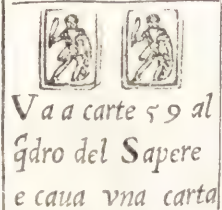 Va a carte 59 al
q̃dro del Sapere
e caua vna carta